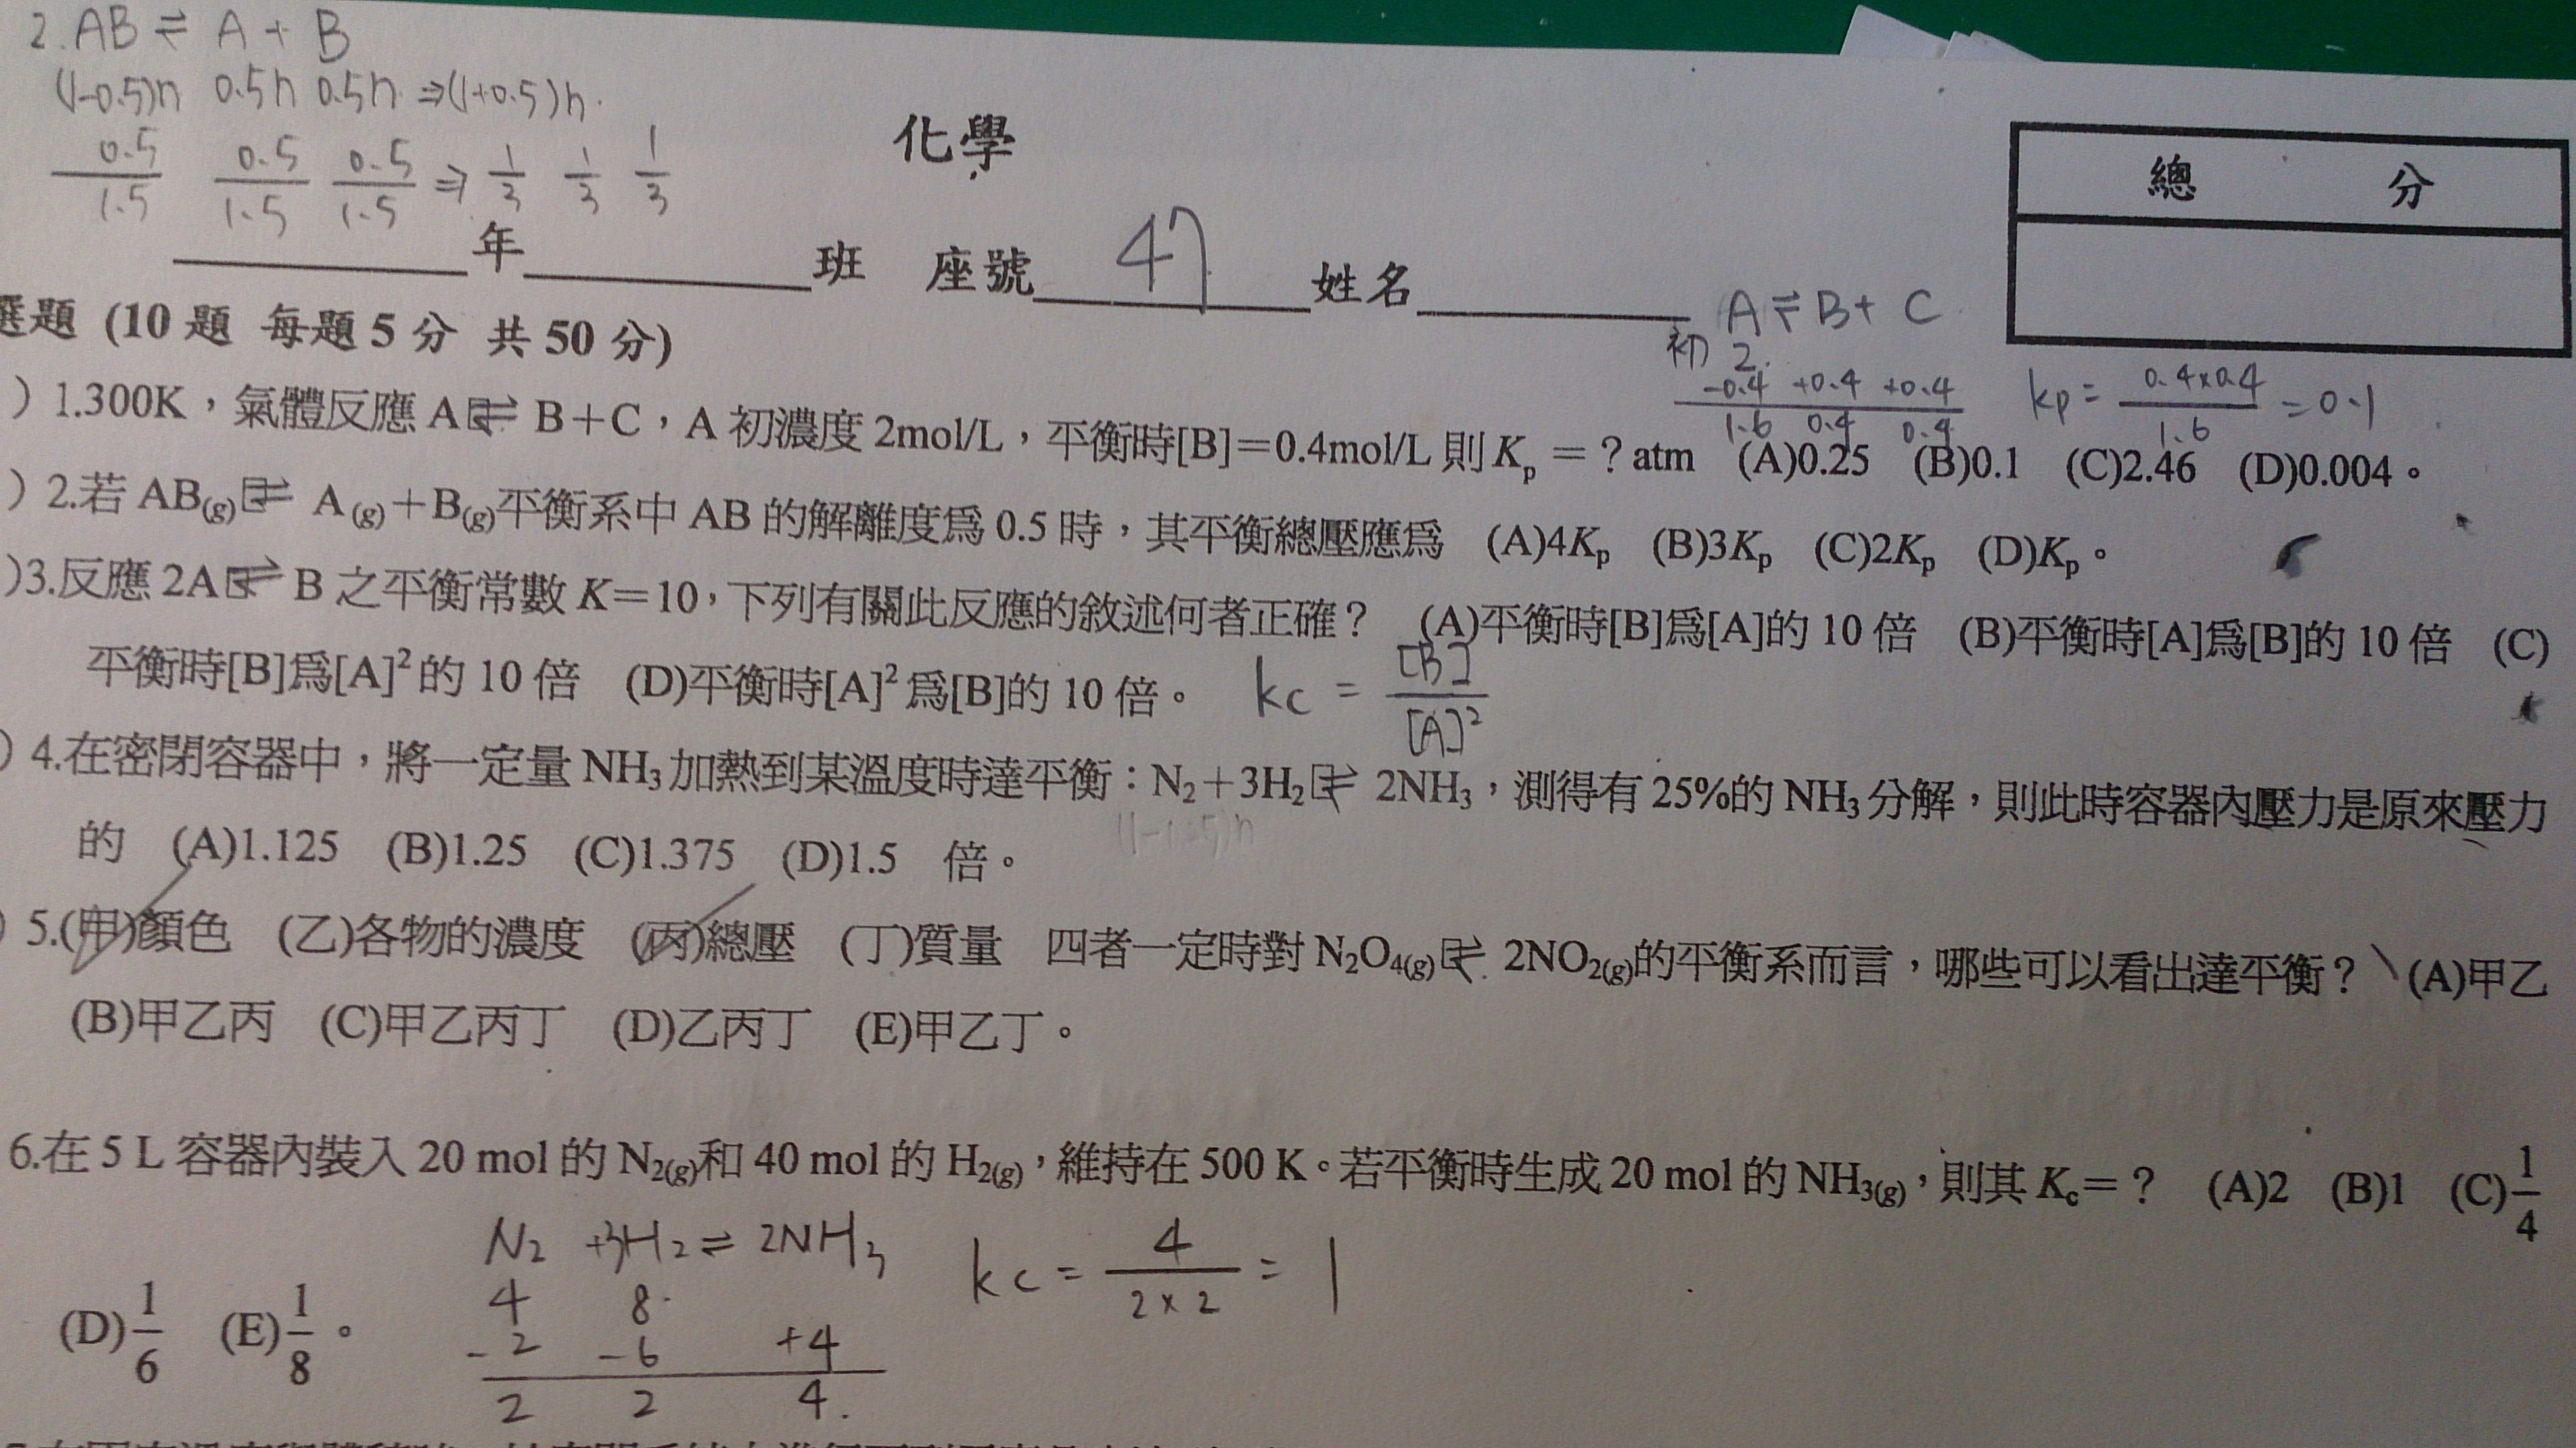 2. AB ⇌ A + B
(1-0.5)n 0.5n 0.5n ⇒(1+0.5)n.
0.5/1.5 0.5/1.5 0.5/1.5 ⇒ 1/3 1/3 1/3
化學
總 分
年 班 座號 47 姓名
選題 (10 題 每題 5 分 共 50 分)
A ⇌ B + C
初 2.
-0.4 +0.4 +0.4
1.6 0.4 0.4
kp = 0.4×0.4/1.6 = 0.1
) 1.300K，氣體反應 A ⇌ B＋C，A 初濃度 2mol/L，平衡時[B]＝0.4mol/L 則 Kp ＝？atm (A)0.25 (B)0.1 (C)2.46 (D)0.004。
) 2.若 AB(g) ⇌ A(g)＋B(g)平衡系中 AB 的解離度為 0.5 時，其平衡總壓應為 (A)4Kp (B)3Kp (C)2Kp (D)Kp。
)3.反應 2A ⇌ B 之平衡常數 K＝10，下列有關此反應的敘述何者正確？ (A)平衡時[B]為[A]的 10 倍 (B)平衡時[A]為[B]的 10 倍 (C)
平衡時[B]為[A]²的 10 倍 (D)平衡時[A]²為[B]的 10 倍。 kc = [B]/[A]²
) 4.在密閉容器中，將一定量 NH₃加熱到某溫度時達平衡：N₂＋3H₂ ⇌ 2NH₃，測得有 25%的 NH₃分解，則此時容器內壓力是原來壓力
的 (A)1.125 (B)1.25 (C)1.375 (D)1.5 倍。
) 5.(甲)顏色 (乙)各物的濃度 (丙)總壓 (丁)質量 四者一定時對 N₂O₄(g) ⇌ 2NO₂(g)的平衡系而言，哪些可以看出達平衡？ (A)甲乙
(B)甲乙丙 (C)甲乙丙丁 (D)乙丙丁 (E)甲乙丁。
6.在 5 L 容器內裝入 20 mol 的 N₂(g)和 40 mol 的 H₂(g)，維持在 500 K。若平衡時生成 20 mol 的 NH₃(g)，則其 Kc＝？ (A)2 (B)1 (C)1/4
(D)1/6 (E)1/8。
N₂ +3H₂ ⇌ 2NH₃
4 8
-2 -6 +4
2 2 4.
kc = 4/2×2 = 1